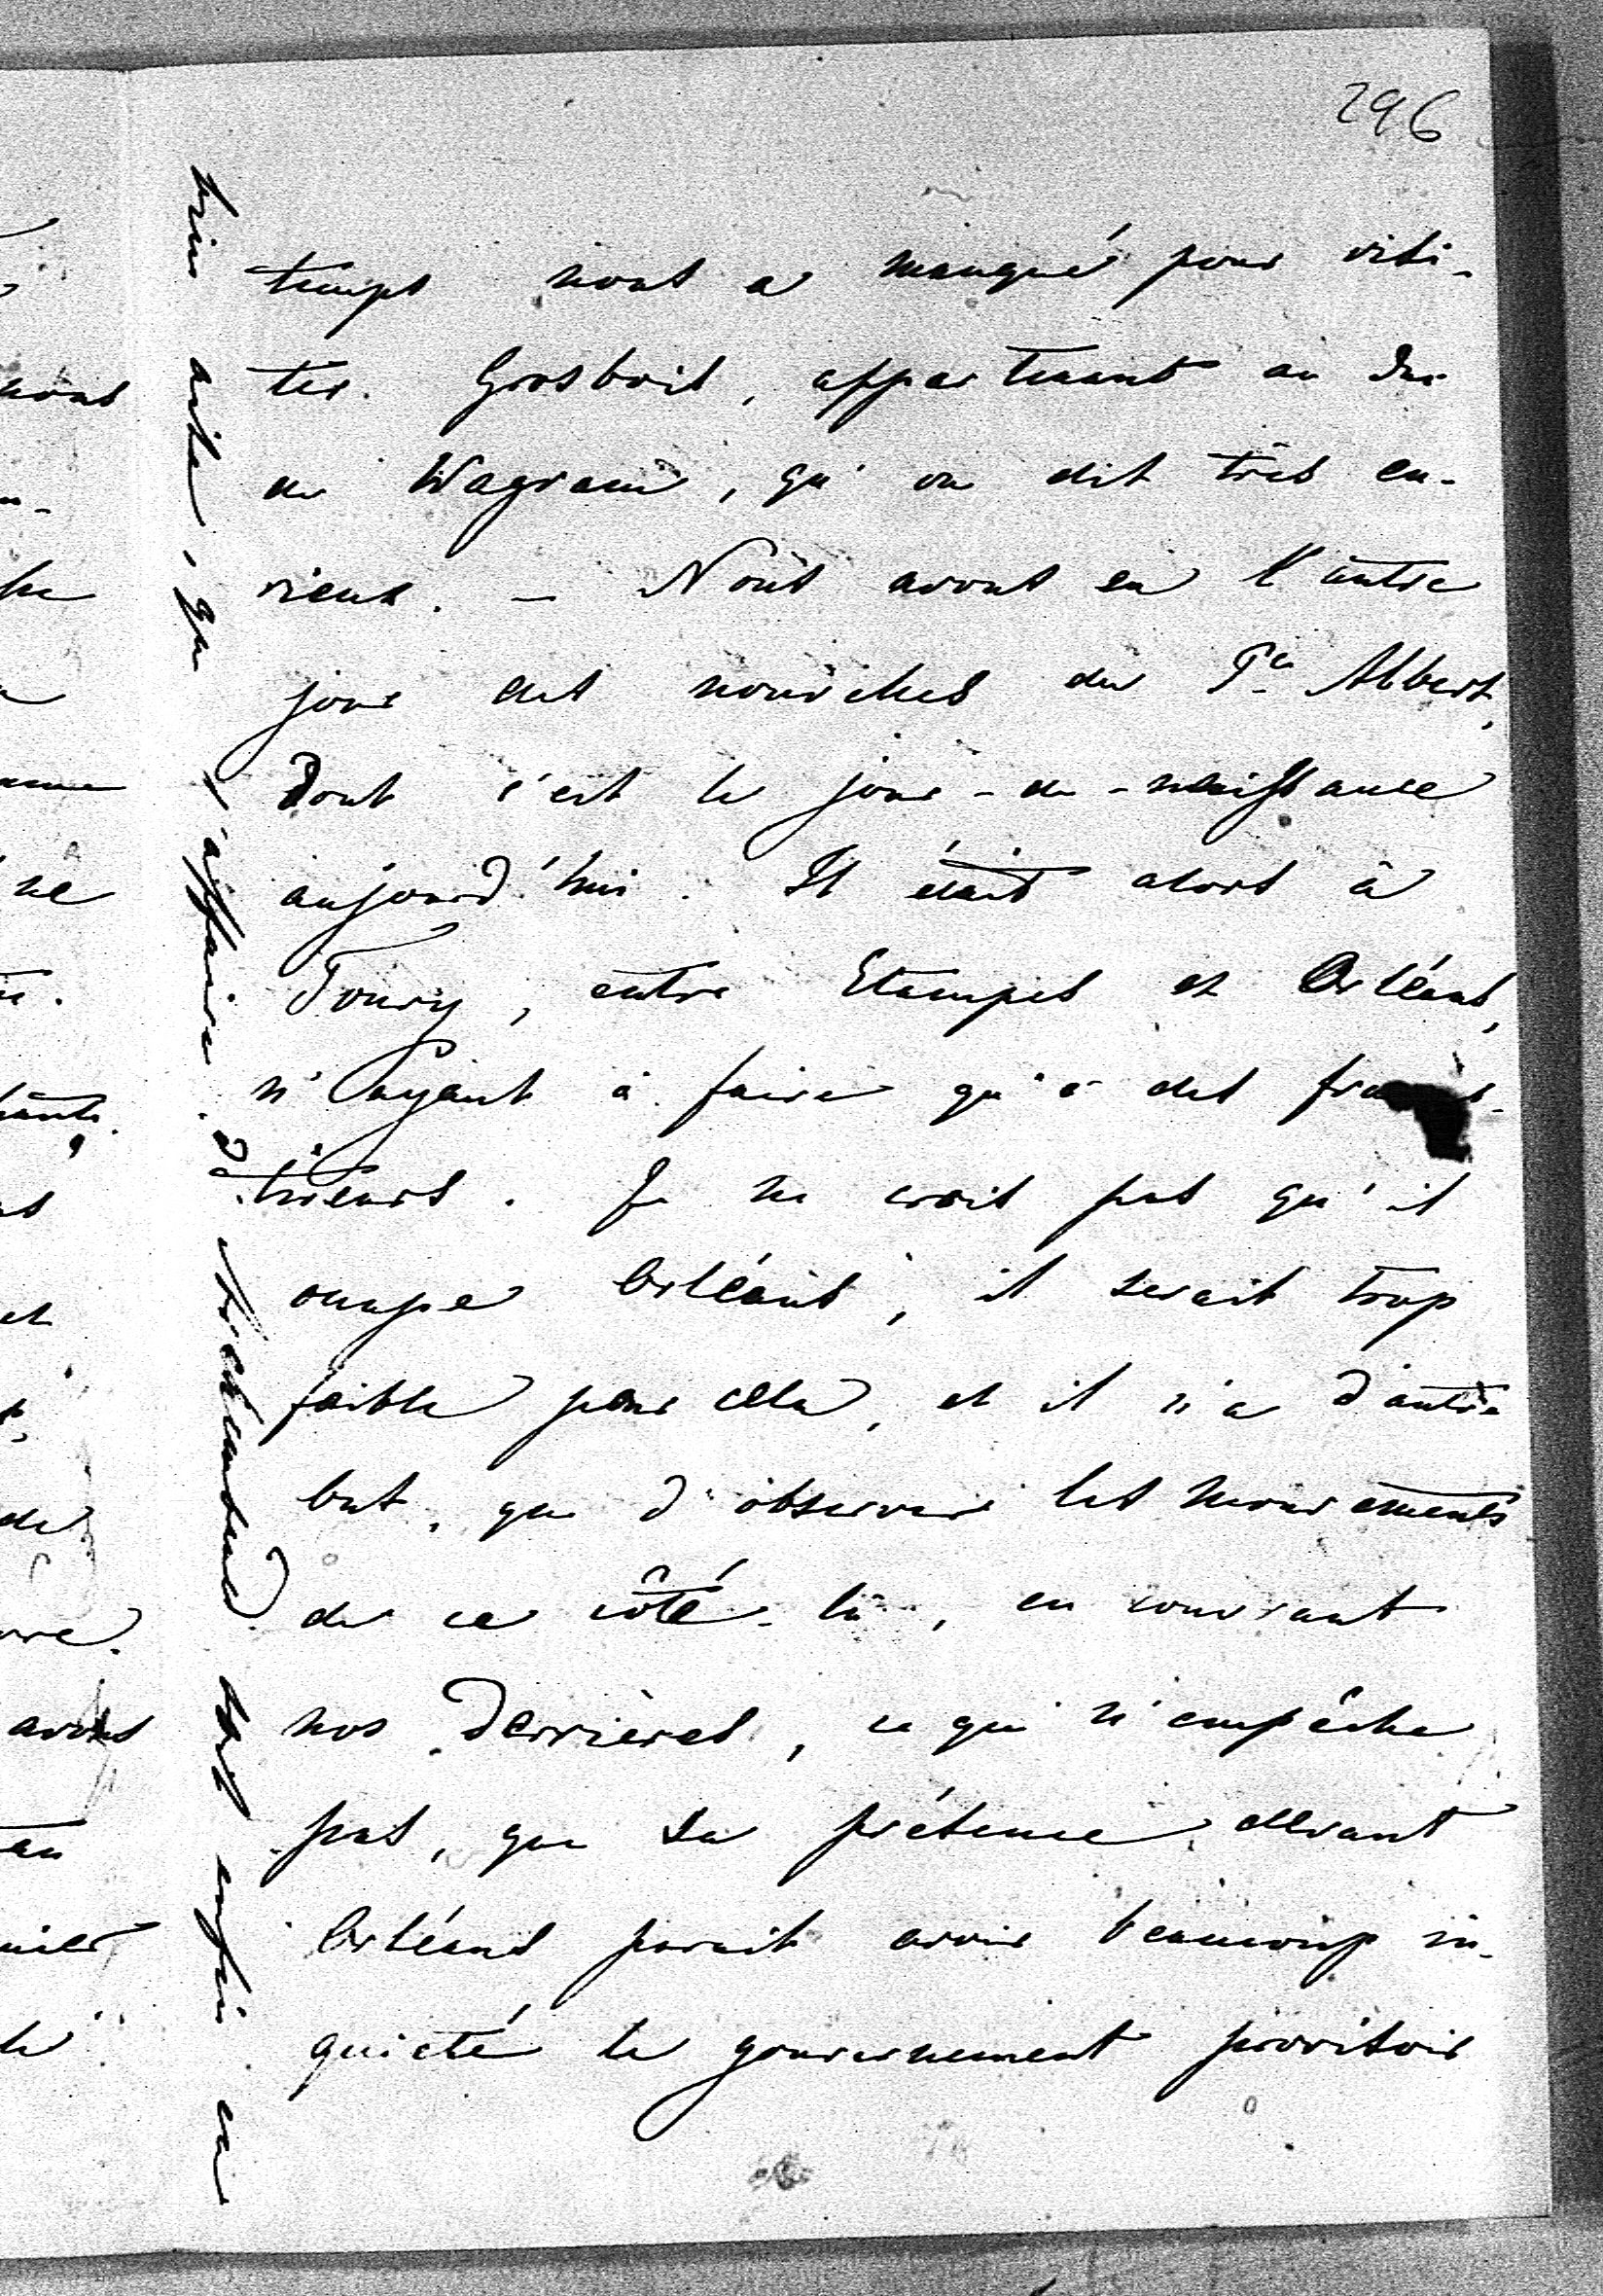 296
temps nous a manqué pour visi-
ter Grosbois, appartenant au duc
de Wagram, qu'on dit très cu-
rieux. — Nous avons eu l'autre
jour des nouvelles du Pce Albert,
dont c'est le jour-de-naissance
aujourd'hui. Il était alors à
Toury, entre Etampes et Orléans,
n'ayant à faire qu'à des francs-
tireurs. Je ne crois pas qu'il
occupe Orléans, il serait trop
faible pour cela, et il n'a d'autre
but, que d'observer les mouvements
de ce côté-là, en couvrant
nos derrières, ce qui n'empêche
pas, que sa présence devant
Orléans parait avoir beaucoup in-
quiété le gouvernement provisoir
que l'affaire enfin en